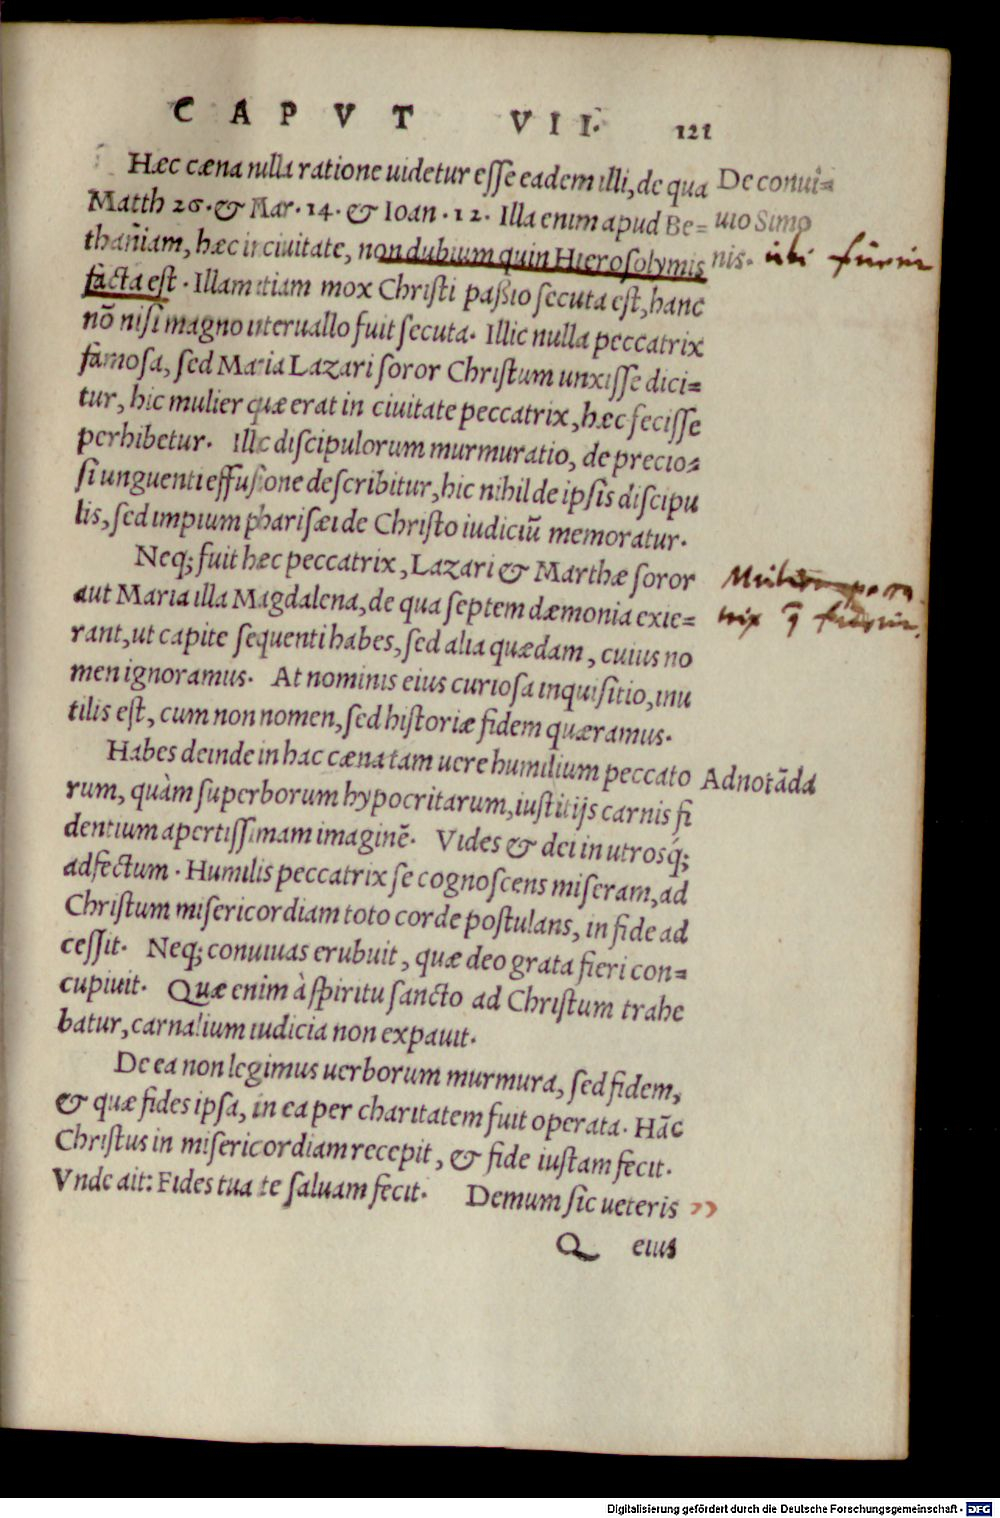 CAPVT VII. 121
Hæc cæna nulla ratione uidetur esse eadem illi, de qua
Matth 26. & Mar. 14. & Ioan. 12. Illa enim apud Be=
thaniam, hæc in ciuitate, non dubium quin Hierosolymis
facta est. Illam etiam mox Christi paßio secuta est, hanc
nõ nisi magno interuallo fuit secuta. Illic nulla peccatrix
famosa, sed Maria Lazari soror Christum unxisse dici=
tur, hic mulier quæ erat in ciuitate peccatrix, hæc fecisse
perhibetur. Illic discipulorum murmuratio, de precio=
si unguenti effusione describitur, hic nihil de ipsis discipu
lis, sed impium pharisæi de Christo iudiciũ memoratur.
Neq; fuit hæc peccatrix, Lazari & Marthæ soror
aut Maria illa Magdalena, de qua septem dæmonia exie=
rant, ut capite sequenti habes, sed alia quædam, cuius no
men ignoramus. At nominis eius curiosa inquisitio, inu
tilis est, cum non nomen, sed historiæ fidem quæramus.
Habes deinde in hac cæna tam uere humilium peccato
rum, quàm superborum hypocritarum, iustitijs carnis fi
dentium apertissimam imaginẽ. Vides & dei in utrosq́;
adfectum. Humilis peccatrix se cognoscens miseram, ad
Christum misericordiam toto corde postulans, in fide ad
cessit. Neq; conuiuas erubuit, quæ deo grata fieri con=
cupiuit. Quæ enim à spiritu sancto ad Christum trahe
batur, carnalium iudicia non expauit.
De ea non legimus uerborum murmura, sed fidem,
& quæ fides ipsa, in ea per charitatem fuit operata. Hãc
Christus in misericordiam recepit, & fide iustam fecit.
Vnde ait: Fides tua te saluam fecit. Demum sic ueteris
Q eius
De conui=
uio Simo
nis. ubi fuerit
Mulier pecca
trix q̄ fuerit.
Adnotãda
Digitalisierung gefördert durch die Deutsche Forschungsgemeinschaft - DFG